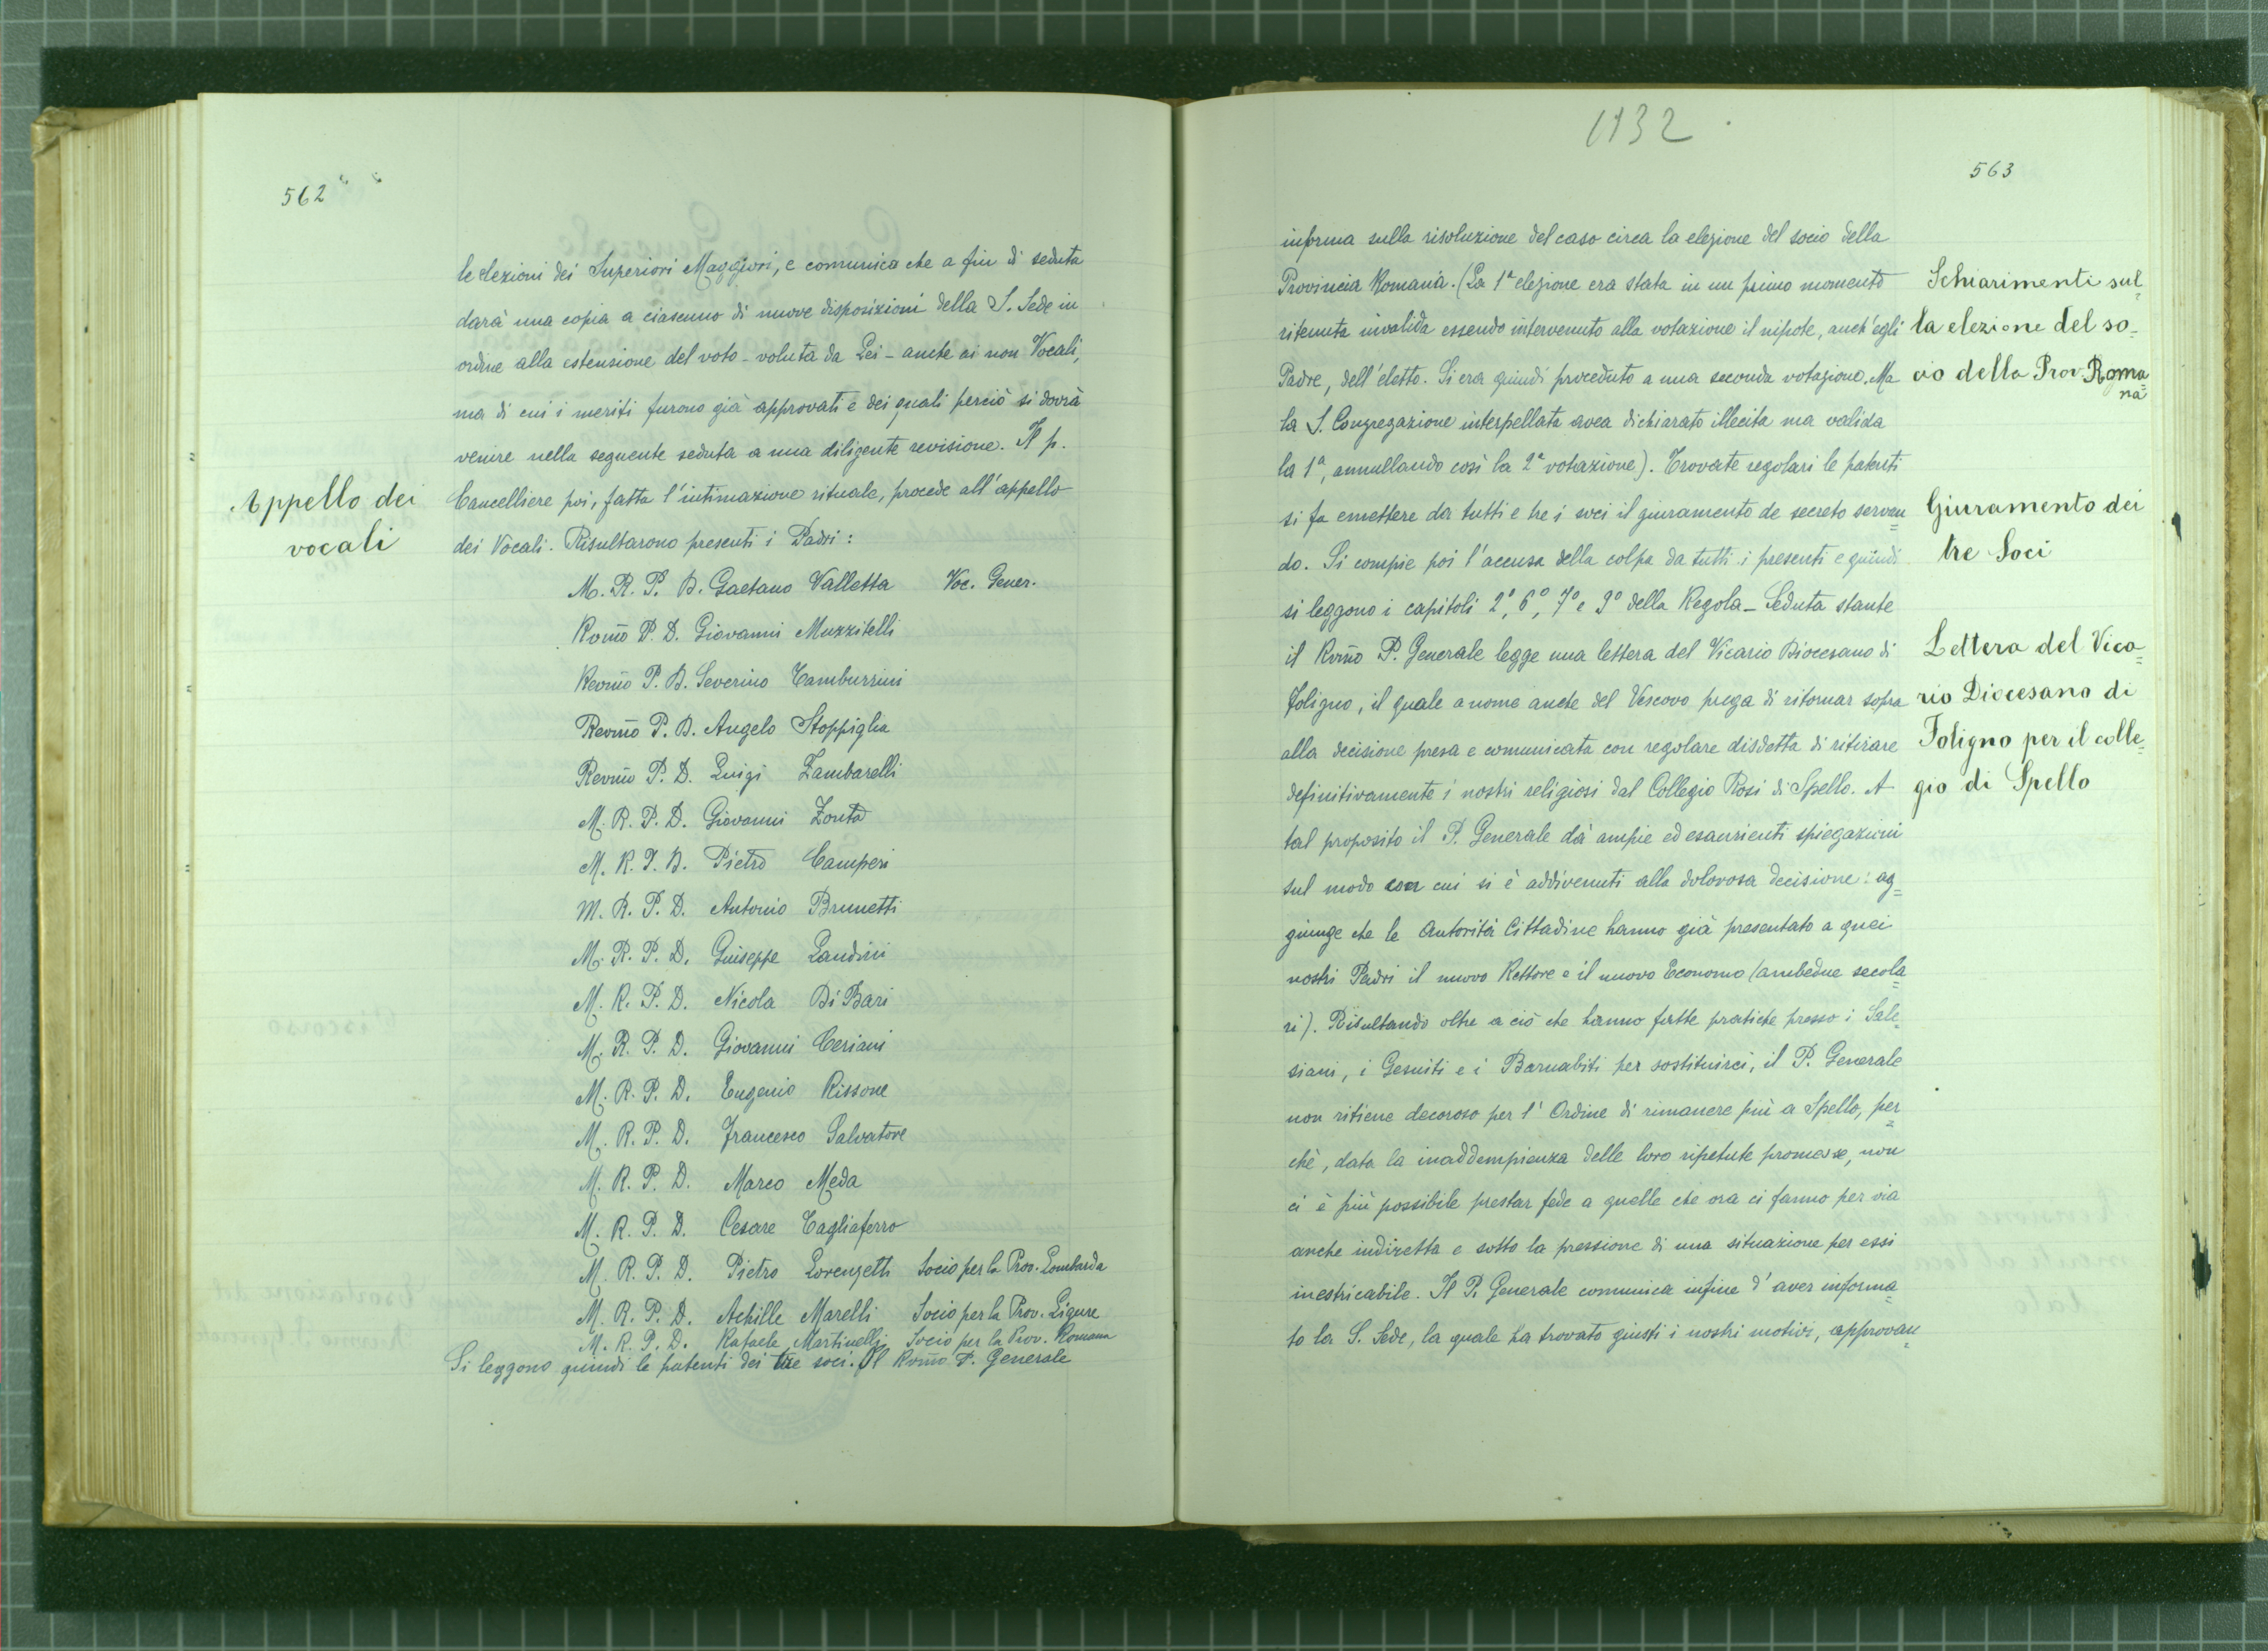 562
le elezioni dei Superiori Maggiori, e comunica che a fin di seduta
darà una copia a ciascuno di nuove disposizioni della S. Sede in
ordine alla estensione del voto - voluta da Lei - anche ai non Vocali,
ma di cui i meriti furono già approvati e dei quali perciò si dovrà
venire nella seguente seduta a una diligente revisione. Il p.
Appello dei
vocali
Cancelliere poi, fatta l'intimazione rituale, procede all'appello
dei Vocali. Risultarono presenti i Padri:
M. R. P. D. Gaetano Valletta Voc. Gener.
Rv̄mo P. D. Giovanni Muzzitelli
Revm̄o P. D. Severino Tamburrini
Revm̄o P. D. Angelo Stoppiglia
Revm̄o P. D. Luigi Zambarelli
M. R. P. D. Giovanni Zonta
M. R. P. D. Pietro Camperi
M. R. P. D. Antonio Brunetti
M. R. P. D. Giuseppe Landini
M. R. P. D. Nicola Di Bari
M. R. P. D. Giovanni Ceriani
M. R. P. D. Eugenio Rissone
M. R. P. D. Francesco Salvatore
M. R. P. D. Marco Meda
M. R. P. D. Cesare Tagliaferro
M. R. P. D. Pietro Lorenzetti Socio per la Prov. Lombarda
M. R. P. D. Achille Marelli Socio per la Prov. Ligure
M. R. P. D. Rafaele Martinelli Socio per la Prov. Romana
Si leggono quindi le patenti dei tre soci. Il Rvm̄o P. Generale
1132
563
informa sulla risoluzione del caso circa la elezione del socio della
Provincia Romana. (La 1ª elezione era stata in un primo momento
ritenuta invalida essendo intervenuto alla votazione il nipote, anch'egli
Padre, dell'eletto. Si era quindi proceduto a una seconda votazione. Ma
la S. Congregazione interpellata avea dichiarato illecita ma valida
la 1ª, annullando così la 2ª votazione). Trovate regolari le patenti
si fa emettere da tutti e tre i soci il giuramento de secreto servan
do. Si compie poi l'accusa della colpa da tutti i presenti e quindi
si leggono i capitoli 2º, 6º, 7º e 9º della Regola - Seduta stante
il Rvm̄o P. Generale legge una lettera del Vicario Diocesano di
Foligno, il quale a nome anche del Vescovo prega di ritornar sopra
alla decisione presa e comunicata con regolare disdetta di ritirare
definitivamente i nostri religiosi dal Collegio Rosi di Spello. A
tal proposito il P. Generale dà ampie ed esaurienti spiegazioni
sul modo con cui si è addivenuti alla dolorosa decisione: ag=
giunge che le Autorità Cittadine hanno già presentato a quei
nostri Padri il nuovo Rettore e il nuovo Economo (ambedue secola=
ri). Risultando oltre a ciò che hanno fatte pratiche presso i Sale=
siani, i Gesuiti e i Barnabiti per sostituirci, il P. Generale
non ritiene decoroso per l'Ordine di rimanere più a Spello, per=
chè, data la inaddempienza delle loro ripetute promesse, non
ci è più possibile prestar fede a quelle che ora ci fanno per via
anche indiretta e sotto la pressione di una situazione per essi
inestricabile. Il P. Generale comunica infine d'aver informa=
to la S. Sede, la quale ha trovato giusti i nostri motivi, approvan=
Schiarimenti sul=
la elezione del so=
cio della Prov. Roma=
na
Giuramento dei
tre Soci
Lettera del Vica=
rio Diocesano di
Foligno per il colle=
gio di Spello